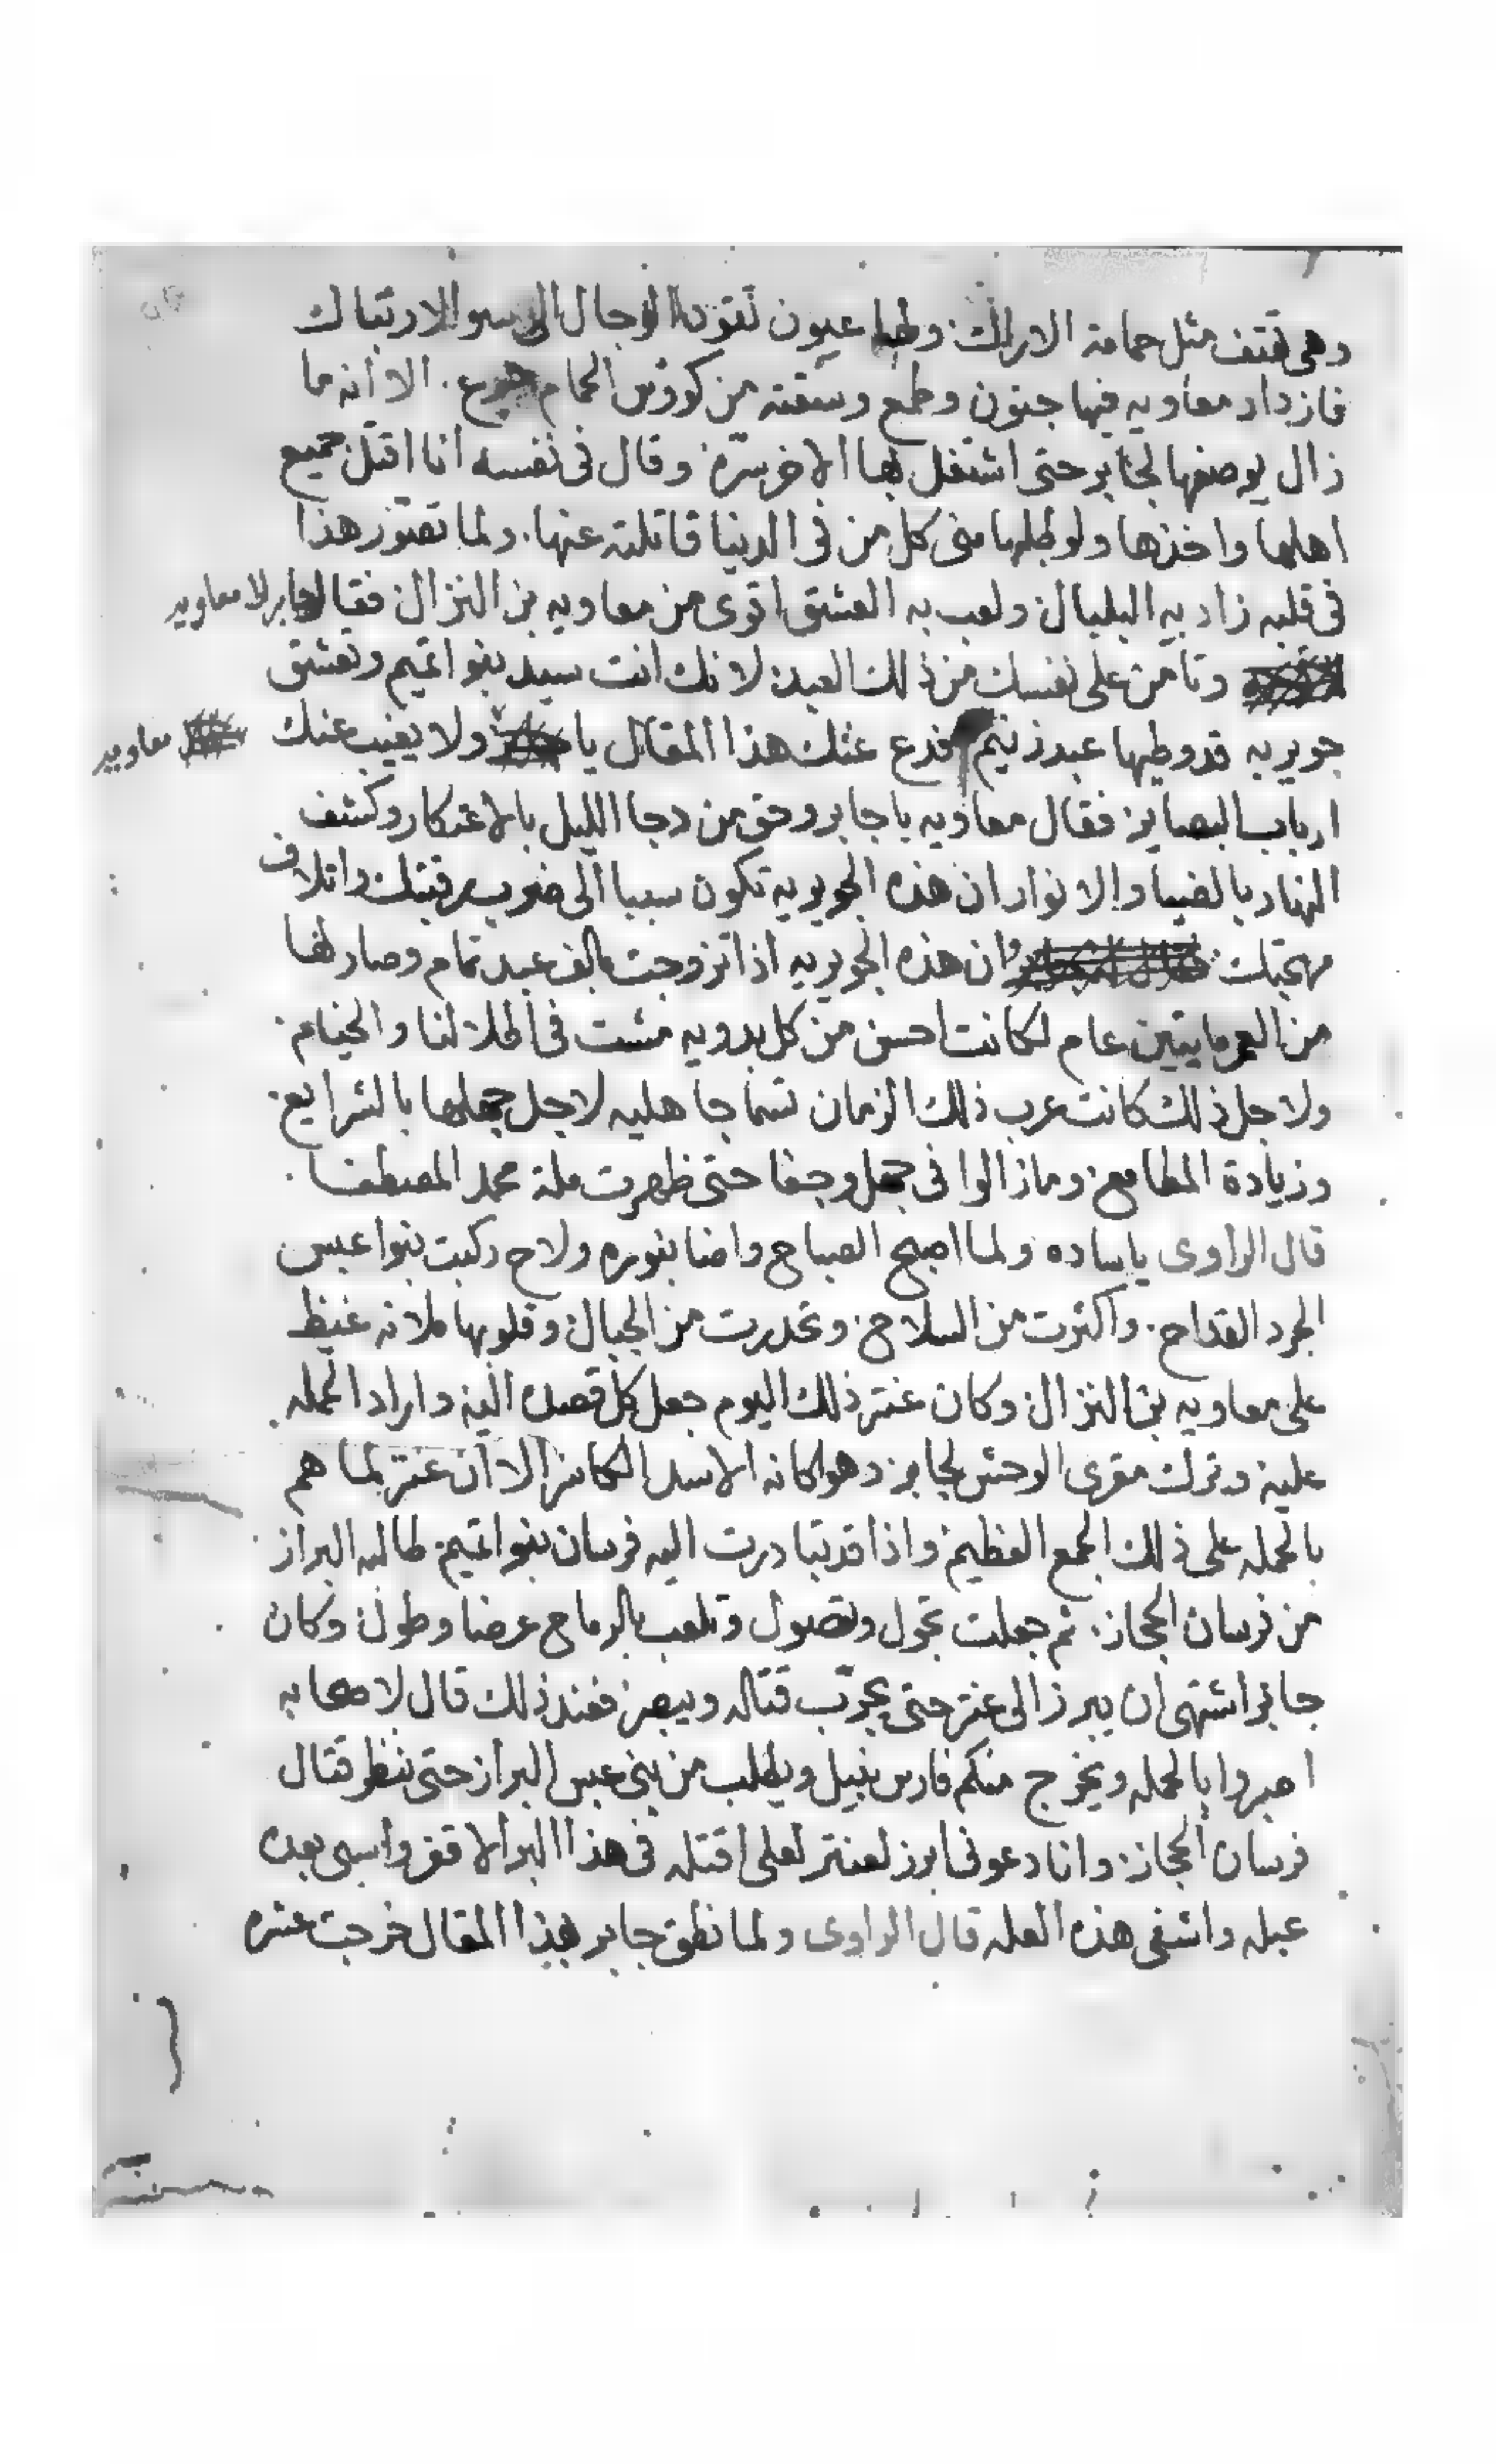 وهى تهتف مثل حمامة الاراك: ولها عيون تقود الرجال الى سو الارتباك
فازداد معاويه فيها جنون وطمع وسقته من كووس الحمام جرع. الا أنه ما
زال يوصفها لجابر حتى اشتغل بها الاخر سرّه: وقال فى نفسه أنا اقتل جميع
اهلها واخذها ولو طلبها منى كل من فى الدنيا قاتلته عنها. ولما تصوّر هذا
فى قلبه زاد به البلبال: ولعب به العشق اقوى من معاويه بن النزال: فقال جابر لا معاويه
وتأمن على نفسك من ذلك العبد: لانك انت سيد بنوا تميم وتعشق
جويريه قد وطيها عبد زنيم فدع عنك هذا المقال يا معاويه ولا يغيب عنك
ارباب البصاير: فقال معاويه يا جابر وحق من دجا الليل بالاعتكار وكشف
النهار بالضيا والانوار ان هذه الجويريه تكون سببا الى ضرب رقبتك واتلاف
مهجتك: وان هذه الجويريه اذا تزوجت بالف عبد تمام وصار لها
من العمر مايتين عام لكانت احسن من كل بدويه مشت فى اطلالنا والخيام:
ولاجل ذلك كانت عرب ذلك الزمان تسما جاهليه لاجل جهلها بالشرايع:
وزيادة المطامع: وما زالوا فى جهل وجفا حتى ظهرت ملة محمد المصطفا.
قال الراوى ياساده ولما اصبح الصباح واضا بنوره ولاح ركبت بنوا عبس
الجرد القداح. واكثرت من السلاح: وتحدرت من الجبال: وقلوبها ملانه غيظ
على معاويه بن النزال: وكان عنتر ذلك اليوم جعل كل قصده اليه: واراد الحمله
عليه: وترك مقرى الوحش لجابر: وهو كانه الاسد الكاسر: الا ان عنتر لما هم
بالحمله على ذلك الجمع العظيم: واذا قد تبادرت اليه فرسان بنوا تميم: طالبه البراز
من فرسان الحجاز: ثم جعلت تجول وتصول وتلعب بالرماح عرضا وطول: وكان
جابر اشتهى ان يبرز الى عنتر حتى يجرّب قتاله ويبصر: فعند ذلك قال لاصحابه
اصبروا بالحمله ويخرج منكم فارس نبيل ويطلب من بنى عبس البراز حتى ننظر قتال
فرسان الحجاز: وانا دعونى ابرز لعنتر لعلى اقتله فى هذا البر الاقفر واسبى بعده
عبله واشفى هذه العله قال الراوى ولما نطق جابر بهذا المقال خرجت عشره